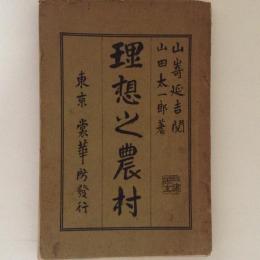 山嵜延吉閲
山田太一郎著
理想之農村
東京 裳華房發行